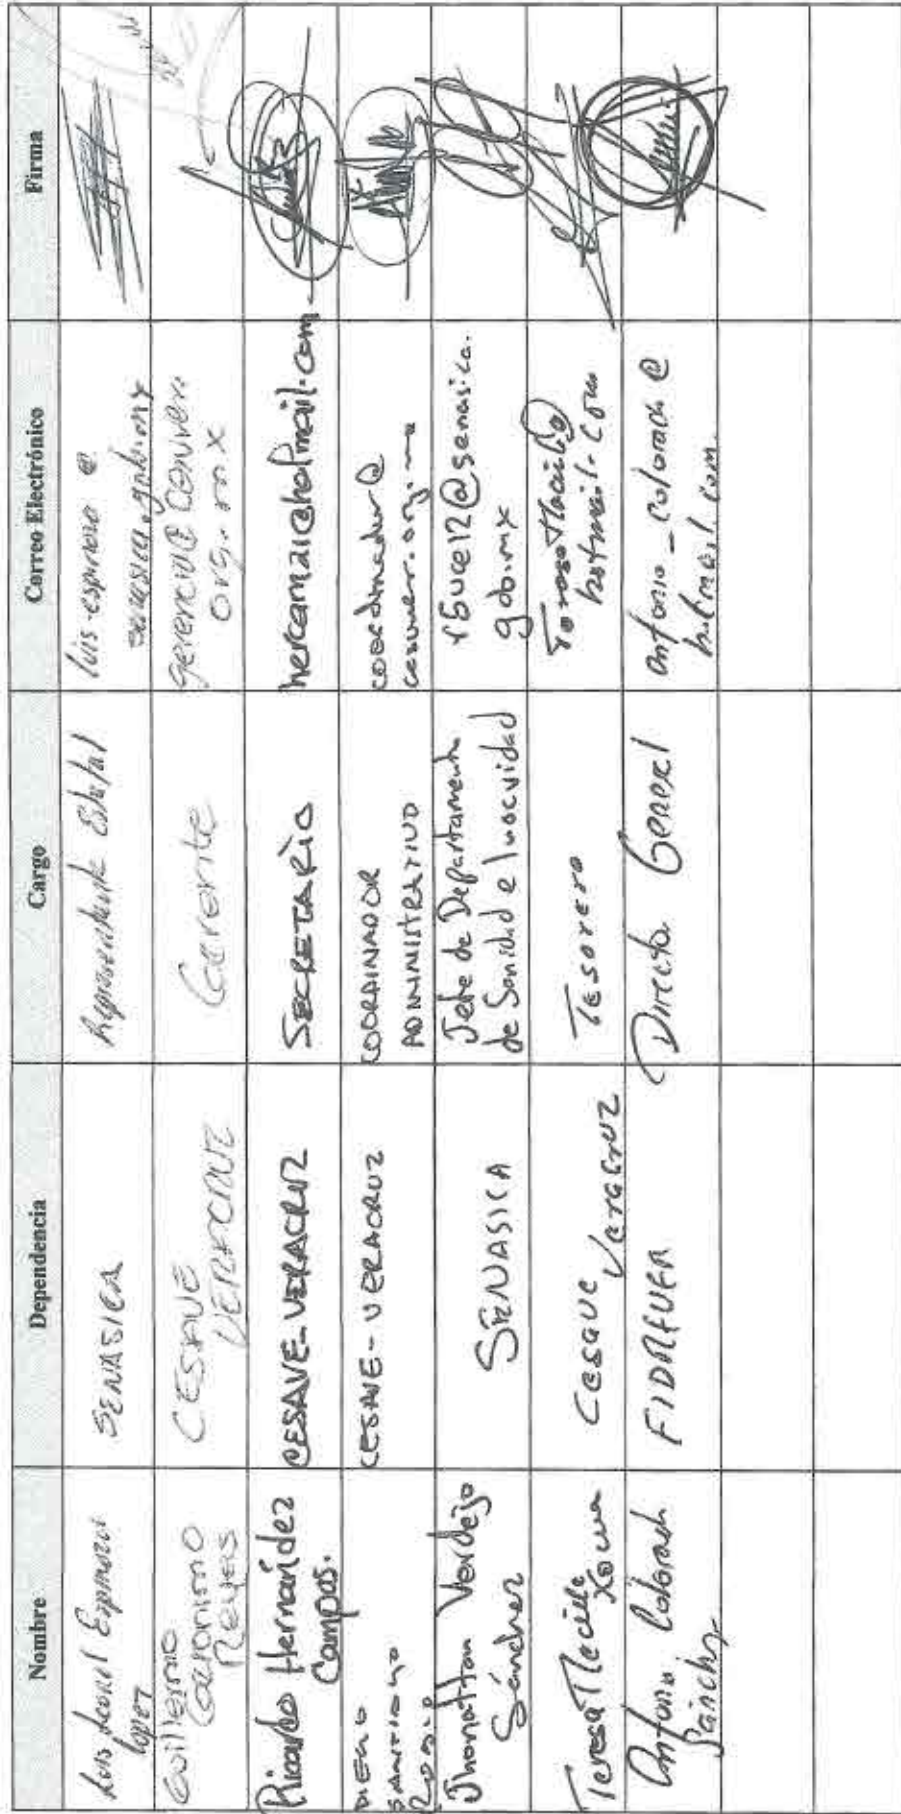 Nombre Dependencia Cargo Correo Electrónico Firma
Luis Leonel Espinoza
lopez
SENASICA
Representante Estatal
luis.espinoza @
senasica.gob.mx
Guillermo
Geronimo
Reyes
CESAVE
VERACRUZ
Gerente
gerencia@cesaver.
org.mx
Ricardo Hernández
Campos.
CESAVE-VERACRUZ
SECRETARIO
DIEGO
SANTIAGO
CESAVE-VERACRUZ
COORDINADOR
ADMINISTRATIVO
coordinador@
cesaver.org.mx
Jhonattan Verdejo
Sánchez
SENASICA
Jefe de Departamento
de Sanidad e Inocuidad
@senasica.
gob.mx
Teresa Tlecuile
CESAVE
Veracruz
Tesorero
hotmail.com
Antonio Colorado
Sánchez
Director General
antonio_colorado @
hotmail.com